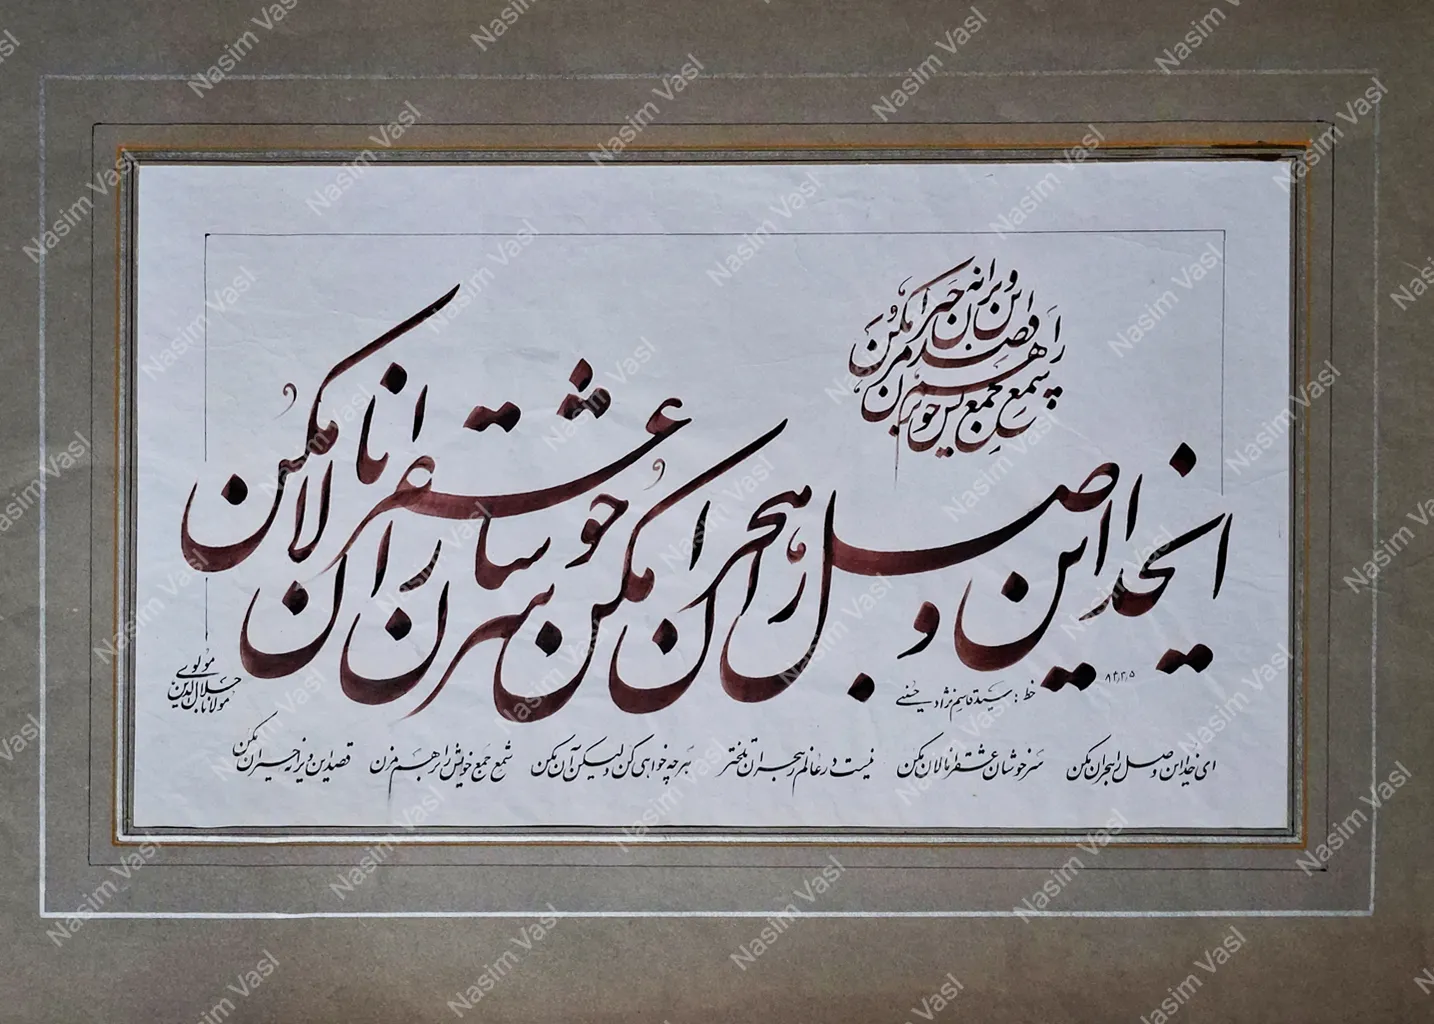 شمع جمع خویش را بر هم مزن
قصد این ویرانه حیران مکن
ایخدا این وصل را هجران مکن
سرخوشان عشق را نالان مکن
خط: سید قاسم نژاد حسینی
مولانا جلال الدین مولوی
ای خدا این وصل را هجران مکن سرخوشان عشق را نالان مکن نیست در عالم ز هجران تلختر هر چه خواهی کن ولیکن آن مکن شمع جمع خویش را بر هم مزن قصد این ویرانه حیران مکن
Nasim Vasl